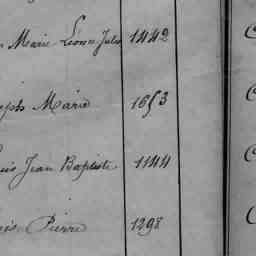 Marie Léonce Jules 1442
eph Marie 1653
uis Jean Baptiste 1144
Pierre 1298